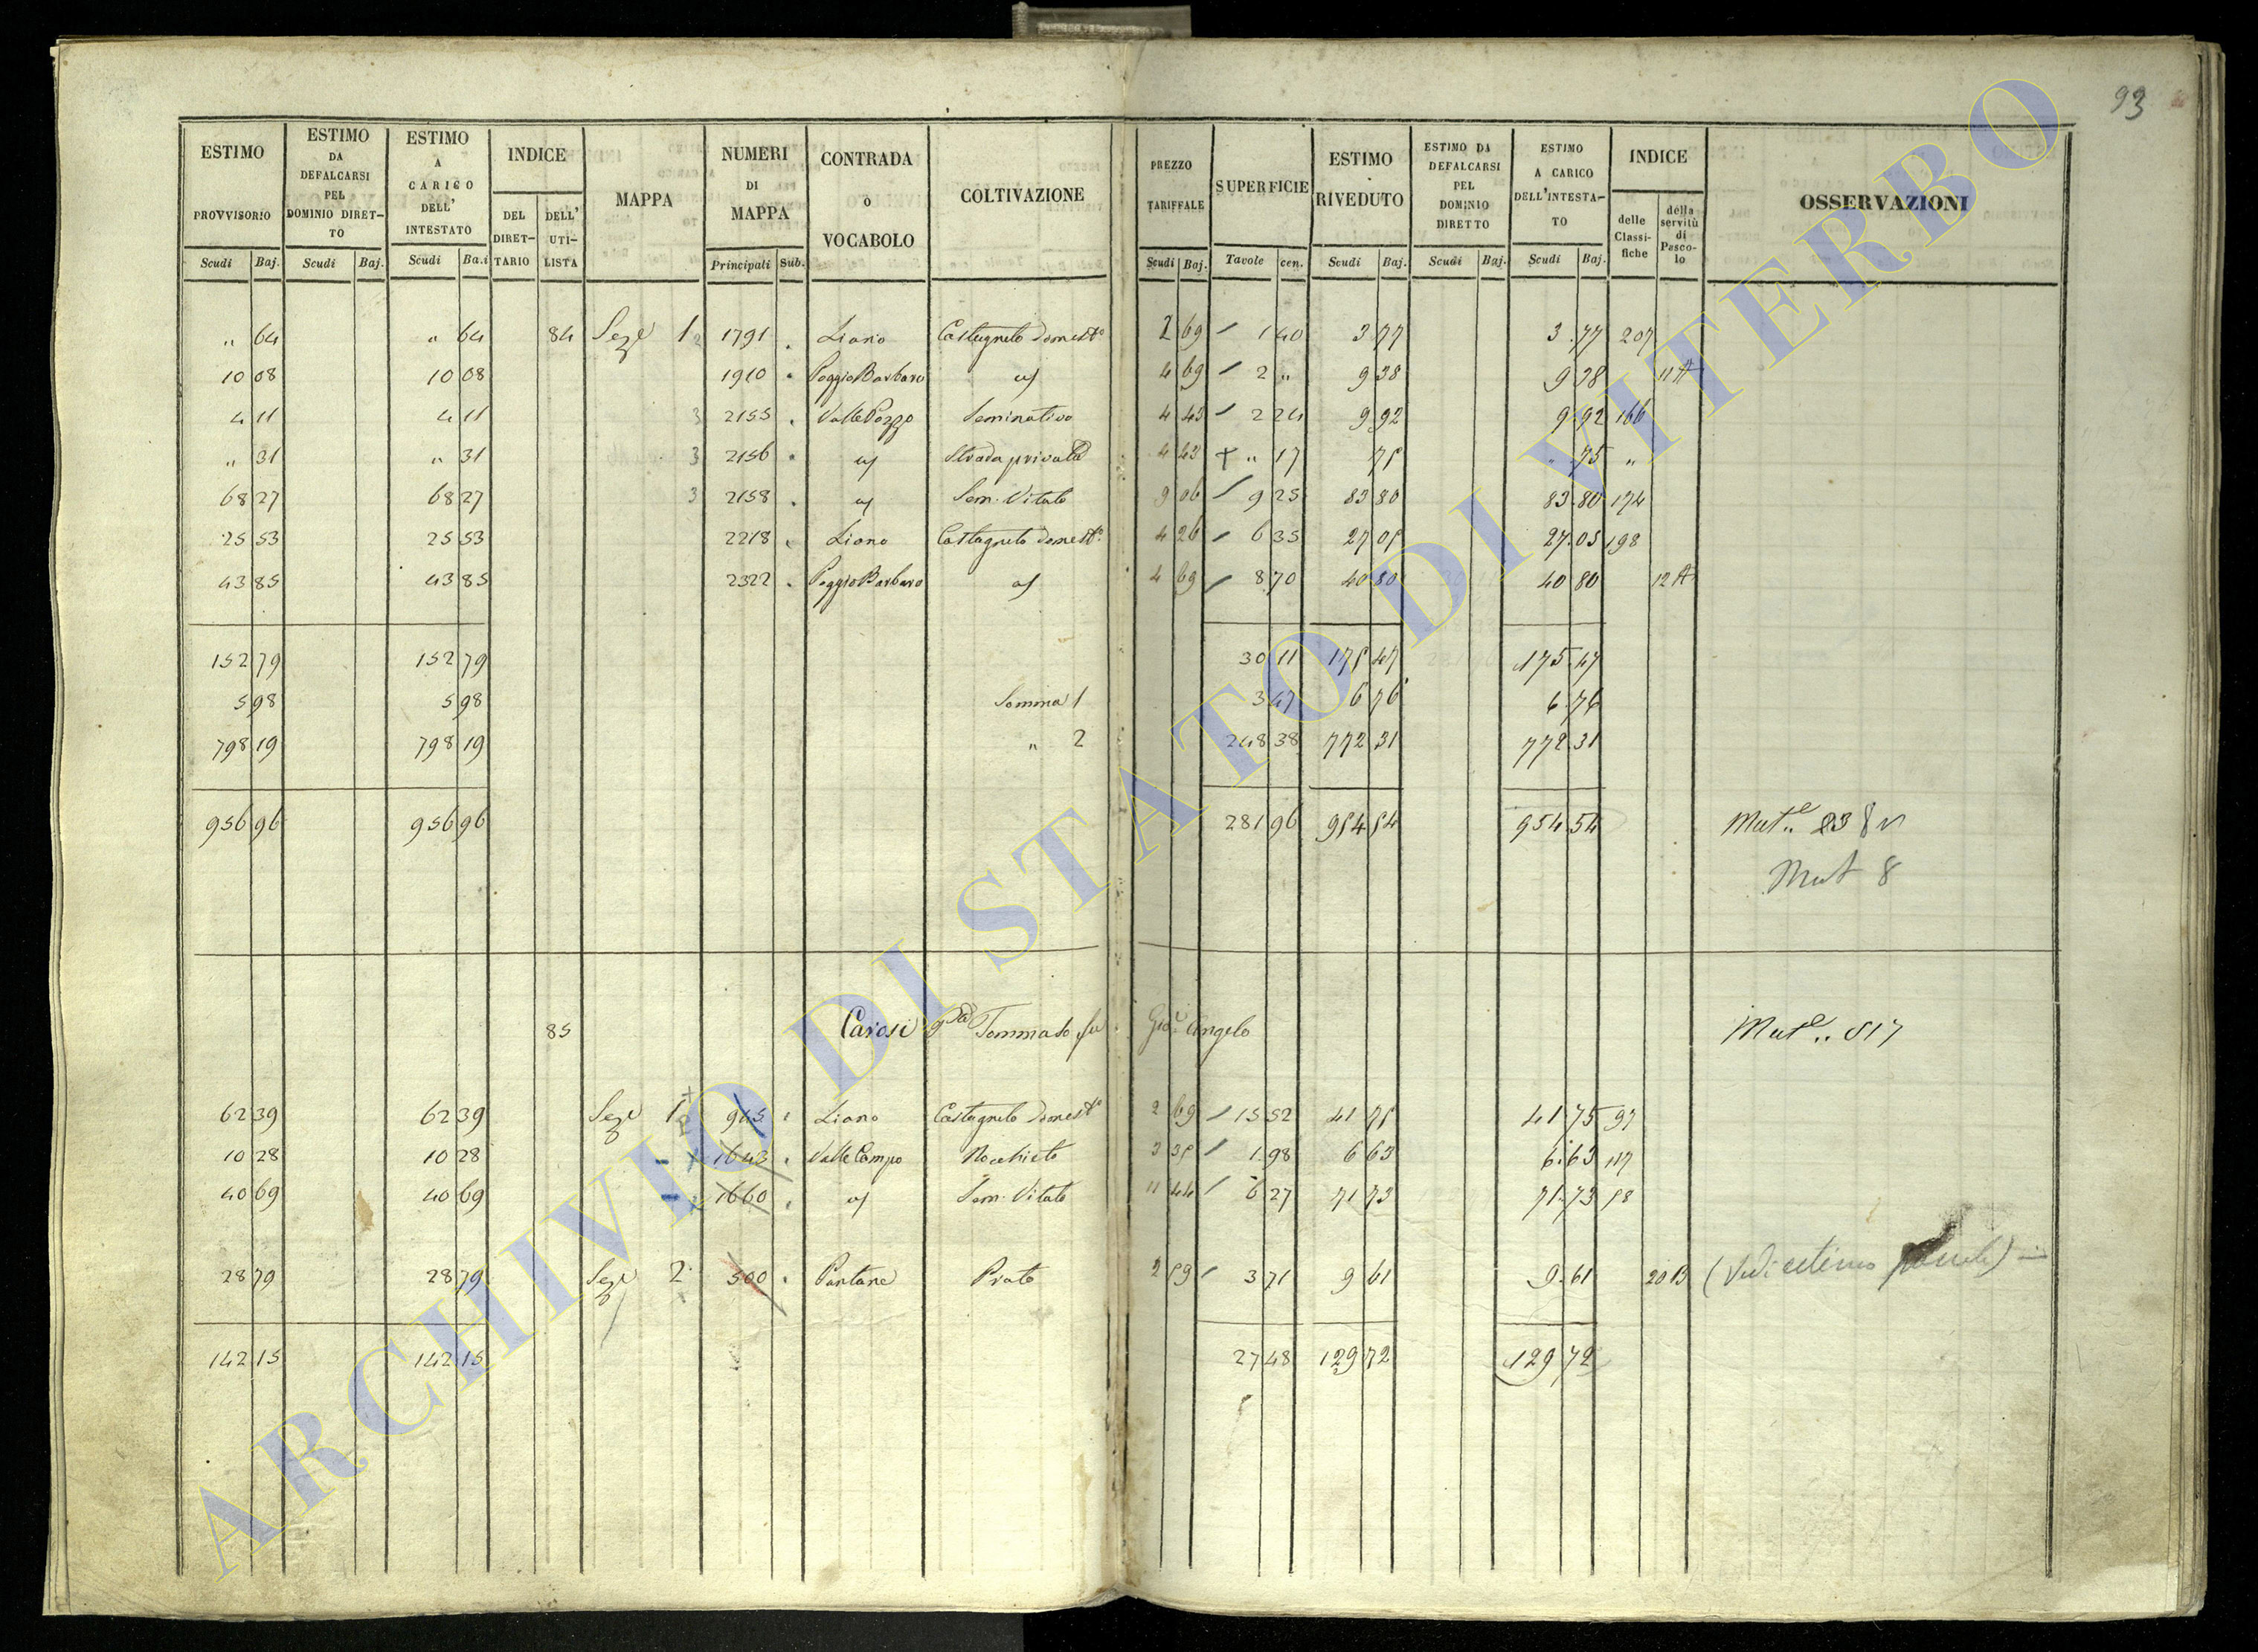 93
ESTIMO PROVVISORIO Scudi Baj.
ESTIMO DA DEFALCARSI PEL DOMINIO DIRET- TO Scudi Baj.
ESTIMO A CARICO DELL' INTESTATO Scudi Ba.i
INDICE DEL DIRET- TARIO DELL' UTI- LISTA
MAPPA
NUMERI DI MAPPA Principali Sub.
CONTRADA O VOCABOLO
COLTIVAZIONE
PREZZO TARIFFALE Scudi Baj.
SUPERFICIE Tavole cen.
ESTIMO RIVEDUTO Scudi Baj.
ESTIMO DA DEFALCARSI PEL DOMINIO DIRETTO Scudi Baj.
ESTIMO A CARICO DELL'INTESTA- TO Scudi Baj.
INDICE delle Classi- fiche della servitù di Pasco- lo
OSSERVAZIONI
" 64 " 64 84 Sezе 1 2 1791 . Liano Castagneto domestº 2 69 1 40 3 77 3 77 207
10 08 10 08 1910 . Poggio Barbaro 4 69 2 " 9 38 9 38 11 A
4 11 4 11 3 2155 . Valle Pozzo Seminativo 4 43 2 24 9 92 9 92 166
" 31 " 31 3 2156 . Strada privata 4 43 " 17 75 " 75 "
68 27 68 27 3 2158 . Sem. Vitato 9 06 9 25 83 80 83 80 174
25 53 25 53 2218 . Liano Castagneto domestº 4 26 6 35 27 05 27 05 198
43 85 43 85 2322 . Poggio Barbaro 4 69 8 70 40 80 40 80 12 A
152 79 152 79 30 11 175 47 175 47
5 98 5 98 Somma 1 3 47 6 76 6 76
798 19 798 19 " 2 248 38 772 31 772 31
956 96 956 96 281 96 954 54 954 54
Mut 8
85 Carosi Tommaso fu Gio: Angelo Mutᵉ .. 817
62 39 62 39 Sezе 1 945 Liano Castagneto domestº 2 69 15 52 41 75 41 75 97
10 28 10 28 1643 . Valle Campo Nocchieto 3 35 1 98 6 63 6 63 117
40 69 40 69 1660 . Sem. Vitato 11 44 6 27 71 73 71 73 58
28 79 28 79 Sezе 2 500 . Pantane Prato 2 59 3 71 9 61 9 61 20 B (Vedi
142 15 142 15 27 48 129 72 129 72
ARCHIVIO DI STATO DI VITERBO